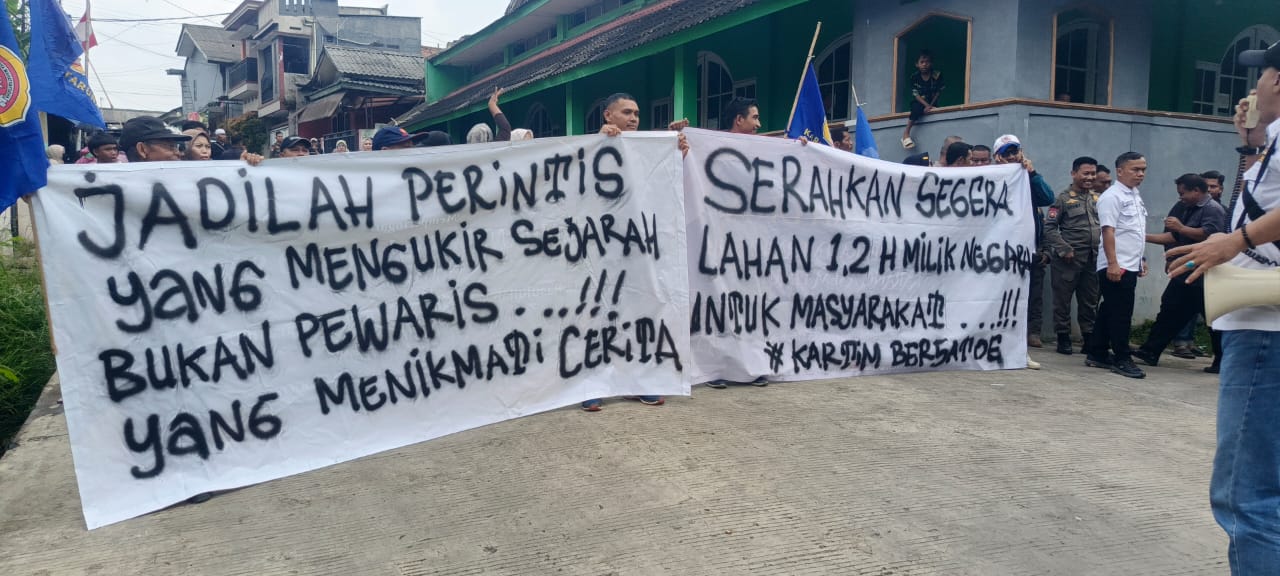 JADILAH PERINTIS
YANG MENGUKIR SEJARAH
BUKAN PEWARIS . . . !!!
YANG MENIKMATI CERITA
SERAHKAN SEGERA
LAHAN 1,2 H MILIK NEGARA
UNTUK MASYARAKAT . . . !!!
# KARTIM BERSATOE